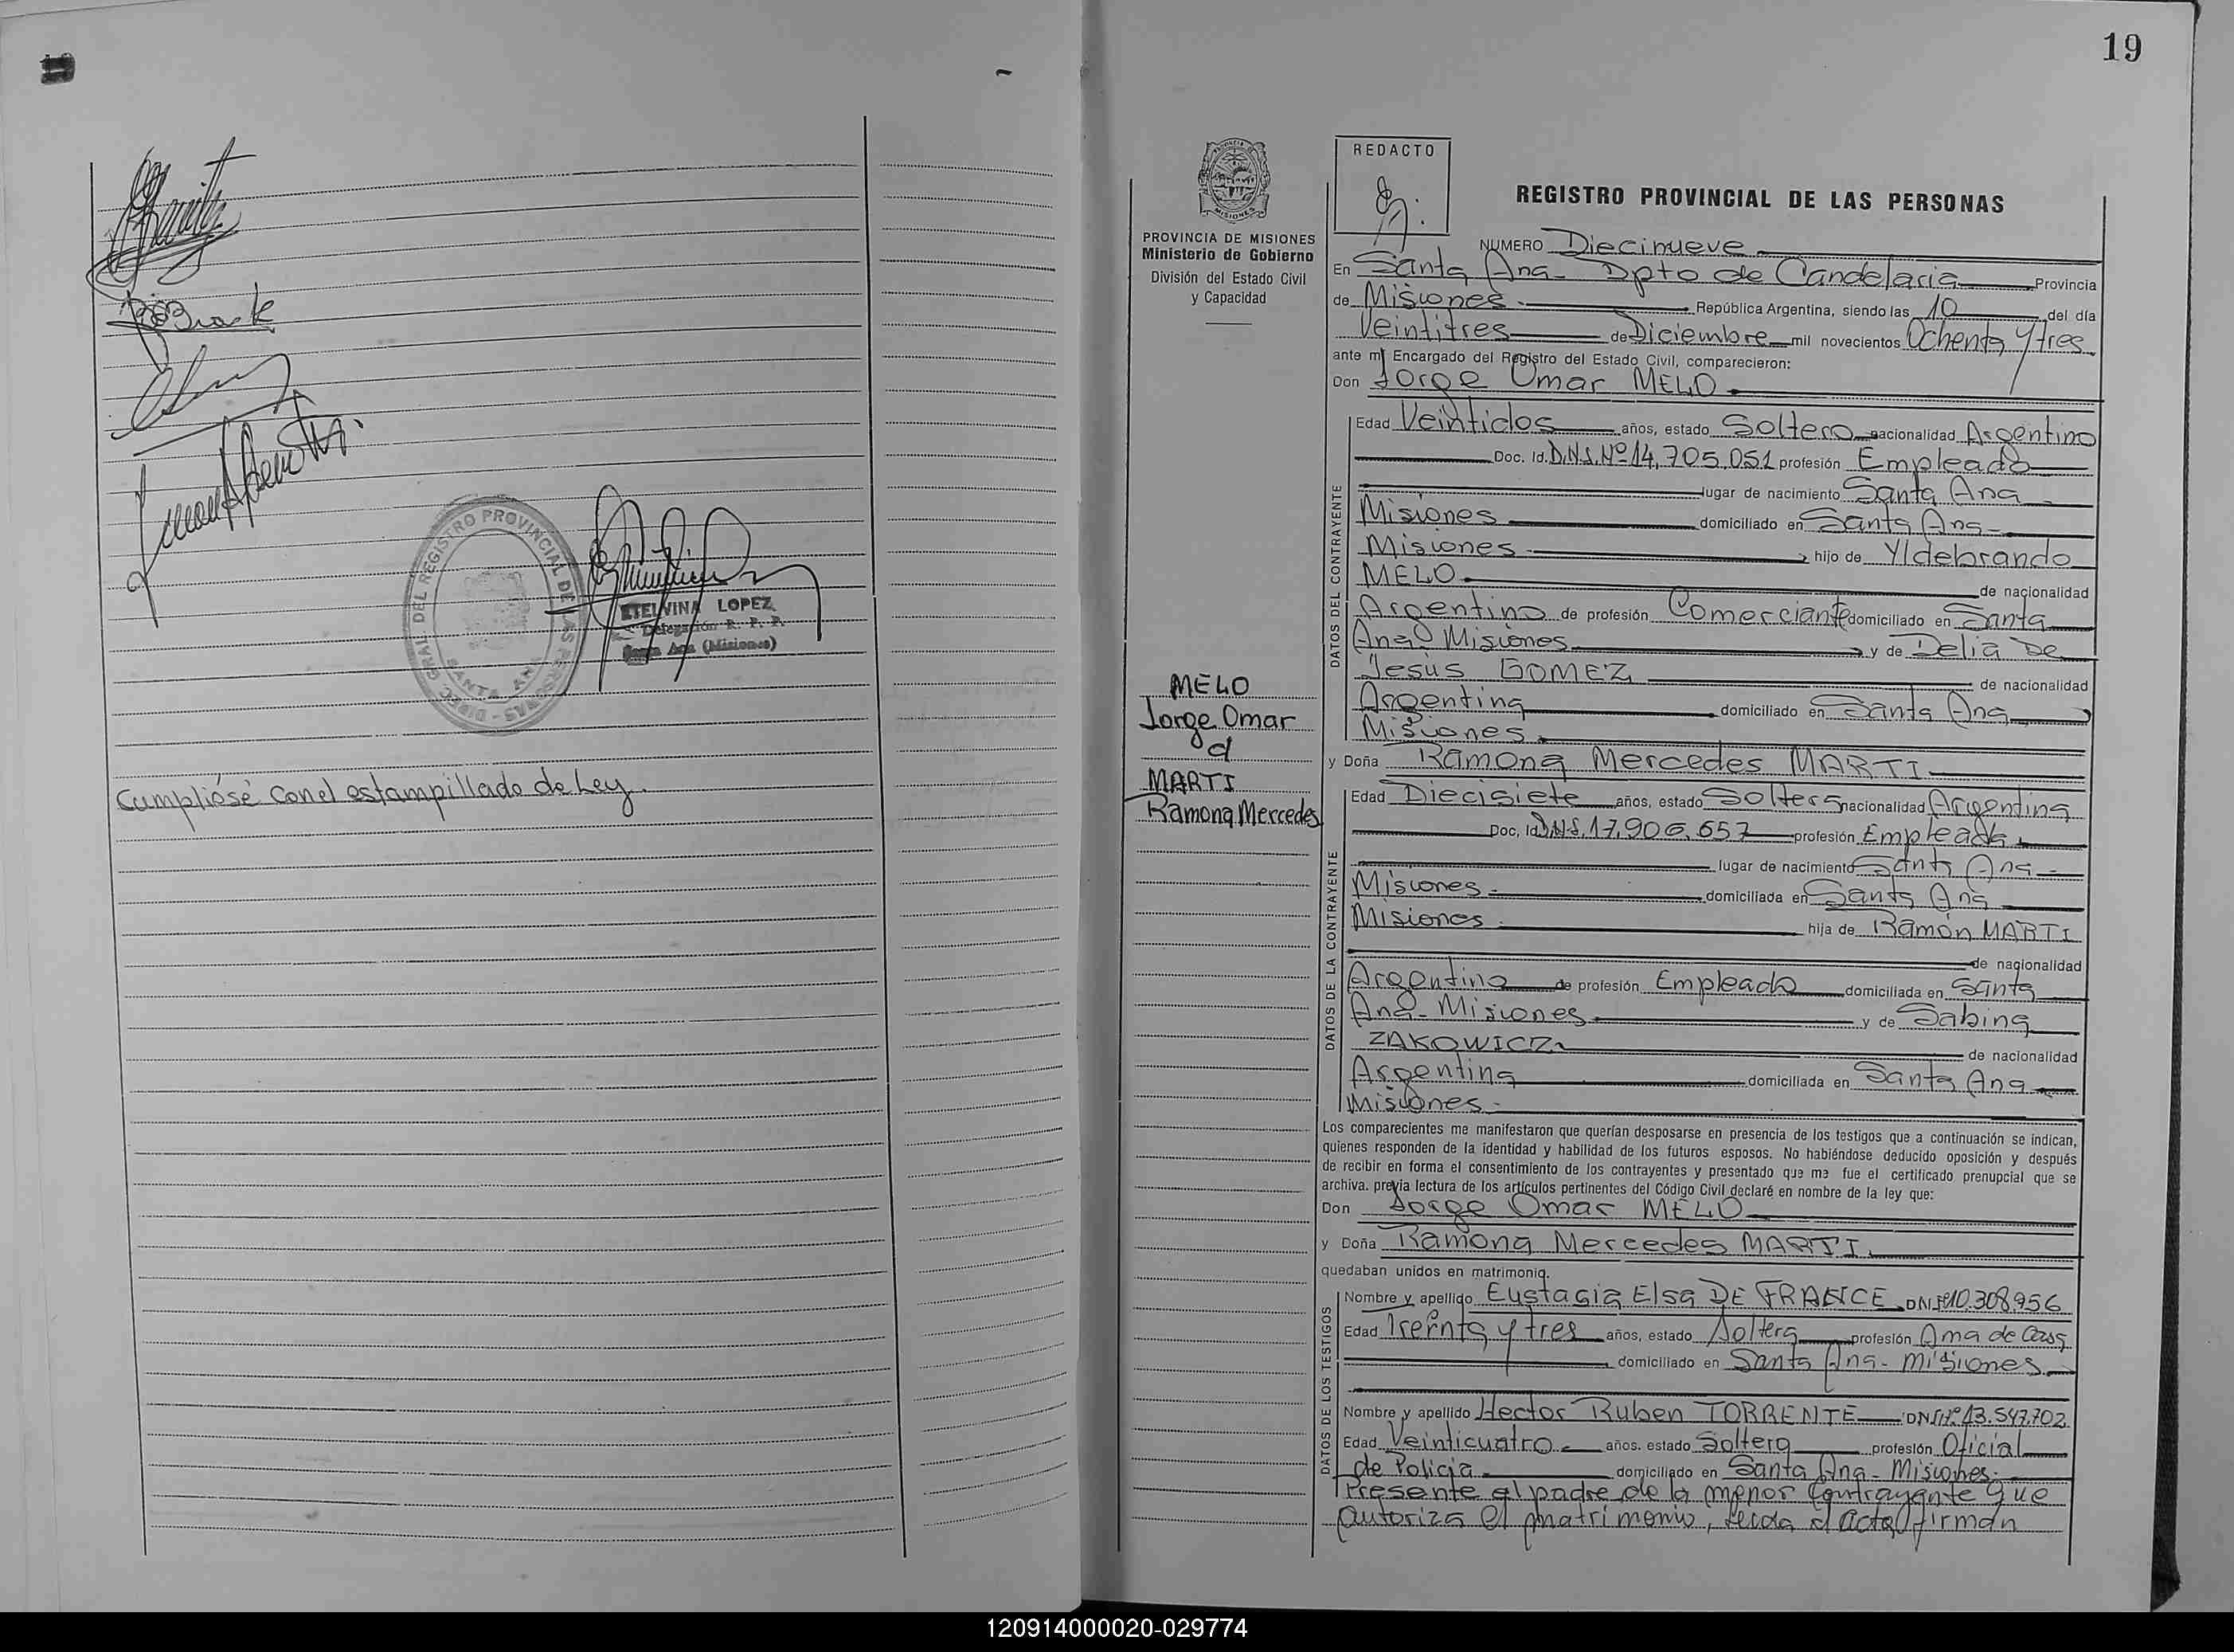 REGISTRO PROVINCIAL DE LAS PERSONAS
DIREC. GRAL DEL
SANTA ANA
ETELVINA LOPEZ
Delegación R. P. P.
Santa Ana (Misiones)
Cumplióse con el estampillado de Ley.
19
PROVINCIA DE MISIONES
Ministerio de Gobierno
División del Estado Civil
y Capacidad
MELO
Jorge Omar
MARTI
Ramona Mercedes
REDACTO
REGISTRO PROVINCIAL DE LAS PERSONAS
NUMERO Diecinueve
En Santa Ana - Dpto de Candelaria Provincia
de Misiones República Argentina, siendo las 10 del día
Veintitres de Diciembre mil novecientos Ochenta y tres
ante mí Encargado del Registro del Estado Civil, comparecieron:
Don Jorge Omar MELO
DATOS DEL CONTRAYENTE
Edad Veintidos años, estado Soltero nacionalidad Argentino
Doc. Id. D.N.I. Nº 14.705.051 profesión Empleado
lugar de nacimiento Santa Ana
Misiones domiciliado en Santa Ana
Misiones hijo de Yldebrando
MELO de nacionalidad
Argentino de profesión Comerciante domiciliado en Santa
Ana Misiones y de Delia De
Jesús GOMEZ de nacionalidad
Argentina domiciliado en Santa Ana
Misiones
y Doña Ramona Mercedes MARTI
DATOS DE LA CONTRAYENTE
Edad Diecisiete años, estado Soltera nacionalidad Argentina
Doc. Id. D.N.I. 17.906.657 profesión Empleada
lugar de nacimiento Santa Ana
Misiones domiciliada en Santa Ana
Misiones hija de Ramón MARTI
de nacionalidad
Argentino de profesión Empleado domiciliada en Santa
Ana - Misiones y de Sabina
ZAKOWICZ de nacionalidad
Argentina domiciliada en Santa Ana
Misiones
Los comparecientes me manifestaron que querían desposarse en presencia de los testigos que a continuación se indican,
quienes responden de la identidad y habilidad de los futuros esposos. No habiéndose deducido oposición y después
de recibir en forma el consentimiento de los contrayentes y presentado que me fue el certificado prenupcial que se
archiva. previa lectura de los artículos pertinentes del Código Civil declaré en nombre de la ley que:
Don Jorge Omar MELO
y Doña Ramona Mercedes MARTI
quedaban unidos en matrimonio.
DATOS DE LOS TESTIGOS
Nombre y apellido Eustacia Elsa DE FRANCE DNI 10.308.956
Edad Treinta y tres años, estado Soltera profesión Ama de Casa
domiciliado en Santa Ana - Misiones
Nombre y apellido Hector Ruben TORRENTE DNI Nº 13.547.702
Edad Veinticuatro años. estado Soltero profesión Oficial
de Policia domiciliado en Santa Ana - Misiones
Presente el padre de la menor Contrayente que
autoriza el matrimonio, Leida el acta firman
120914000020-029774